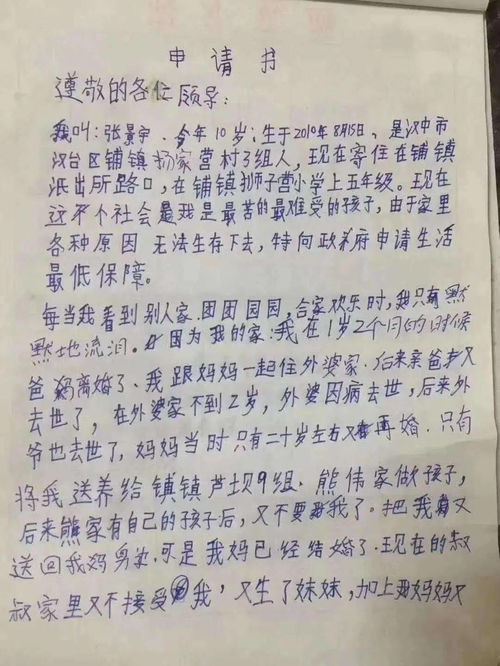 申请书
遵敬的各位领导:
我叫:张景宇、今年10岁;生于2010年8月15日、是汉中市
汉台区铺镇杨家营村3组人,现在寄住在铺镇
派出所路口,在铺镇狮子营小学上五年级。现在
这个社会是我是最苦的最难受的孩子,由于家里
各种原因 无法生存下去,特向政府申请生活
最低保障。
每当我看到别人家团团园园,合家欢乐时,我只有默
默地流泪。因为我的家:我在1岁2个月的时候
爸妈离婚了、我跟妈妈一起住外婆家.后来亲爸又
去世了,在外婆家不到2岁,外婆因病去世,后来外
爷也去世了,妈妈当时只有二十岁左右又再婚.只有
将我送养给铺镇芦坝9组.熊伟家做孩子,
后来熊家有自己的孩子后,又不要我了.把我又
送回我妈身边.可是我妈已经结婚了.现在的叔
叔家里又不接受我,又生了妹妹,加上我妈妈又